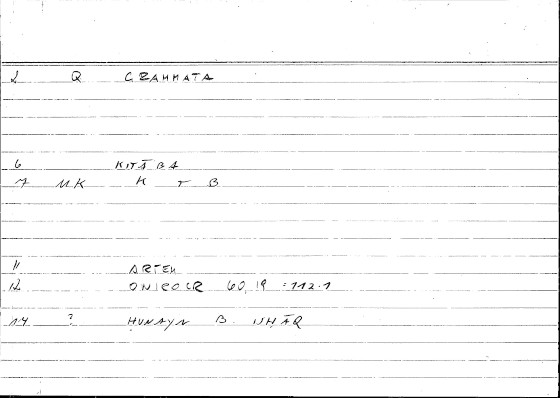 2 Q GRAMMATA
6 KITĀBA
7 MK K T B
11 ARTEM
12 ONIROCR 60,19 :112.1
14 ? ḤUNAYN B. ISḤĀQ